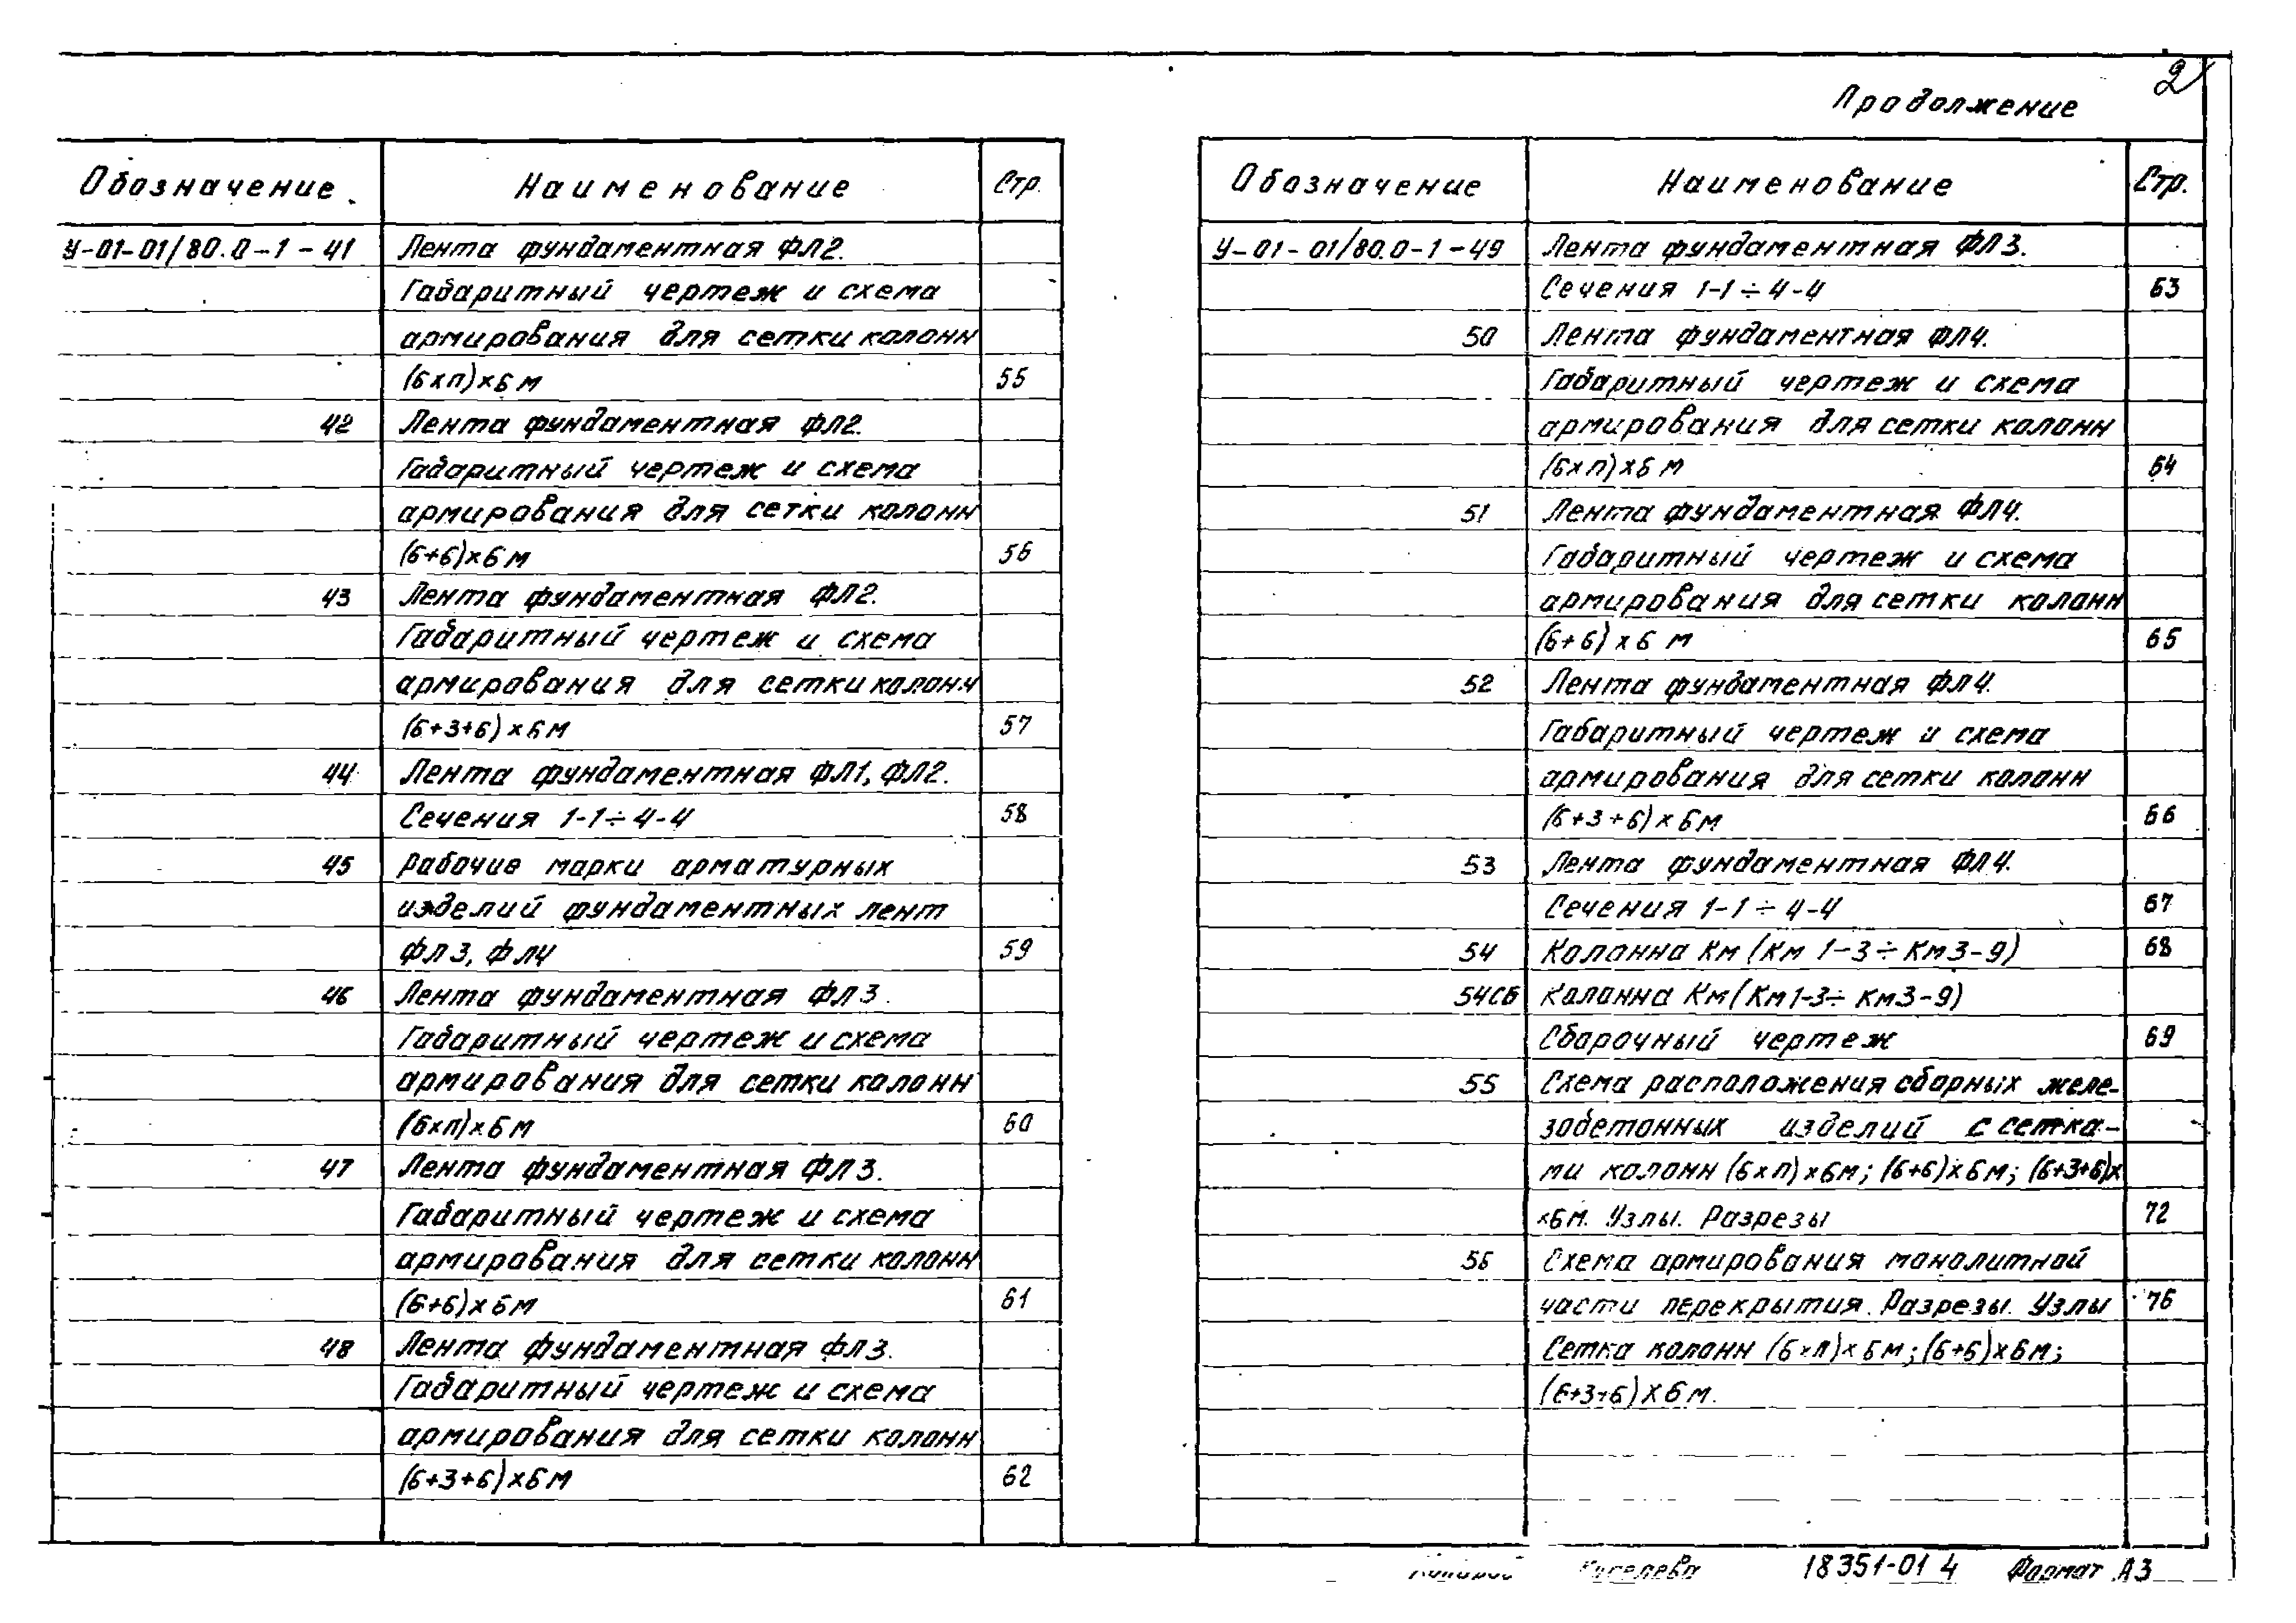 2
Продолжение
Обозначение Наименование Стр.
У-01-01/80.0-1-41 Лента фундаментная ФЛ2.
Габаритный чертеж и схема
армирования для сетки колонн
(6хп)х6м 55
42 Лента фундаментная ФЛ2.
Габаритный чертеж и схема
армирования для сетки колонн
(6+6)х6м 56
43 Лента фундаментная ФЛ2.
Габаритный чертеж и схема
армирования для сетки колонн
(6+3+6)х6м 57
44 Лента фундаментная ФЛ1, ФЛ2.
Сечения 1-1÷4-4 58
45 Рабочие марки арматурных
изделий фундаментных лент
ФЛ3, ФЛ4 59
46 Лента фундаментная ФЛ3.
Габаритный чертеж и схема
армирования для сетки колонн
(6хп)х6м 60
47 Лента фундаментная ФЛ3.
Габаритный чертеж и схема
армирования для сетки колонн
(6+6)х6м 61
48 Лента фундаментная ФЛ3.
Габаритный чертеж и схема
армирования для сетки колонн
(6+3+6)х6м 62
Обозначение Наименование Стр.
У-01-01/80.0-1-49 Лента фундаментная ФЛ3.
Сечения 1-1÷4-4 63
50 Лента фундаментная ФЛ4.
Габаритный чертеж и схема
армирования для сетки колонн
(6хп)х6 м 64
51 Лента фундаментная ФЛ4.
Габаритный чертеж и схема
армирования для сетки колонн
(6+6)х6 м 65
52 Лента фундаментная ФЛ4.
Габаритный чертеж и схема
армирования для сетки колонн
(6+3+6)х6м 66
53 Лента фундаментная ФЛ4.
Сечения 1-1÷4-4 67
54 Колонна Км (Км 1-3÷Км3-9) 68
54СБ Колонна Км (Км1-3÷Км3-9)
Сборочный чертеж 69
55 Схема расположения сборных желе-
зобетонных изделий с сетка-
ми колонн (6хп)х6м; (6+6)х6м; (6+3+6)х
х6м. Узлы. Разрезы 72
56 Схема армирования монолитной
части перекрытия. Разрезы. Узлы 76
Сетка колонн (6хп)х6м; (6+6)х6м;
(6+3+6)х6м.
18351-01 4 Формат А3